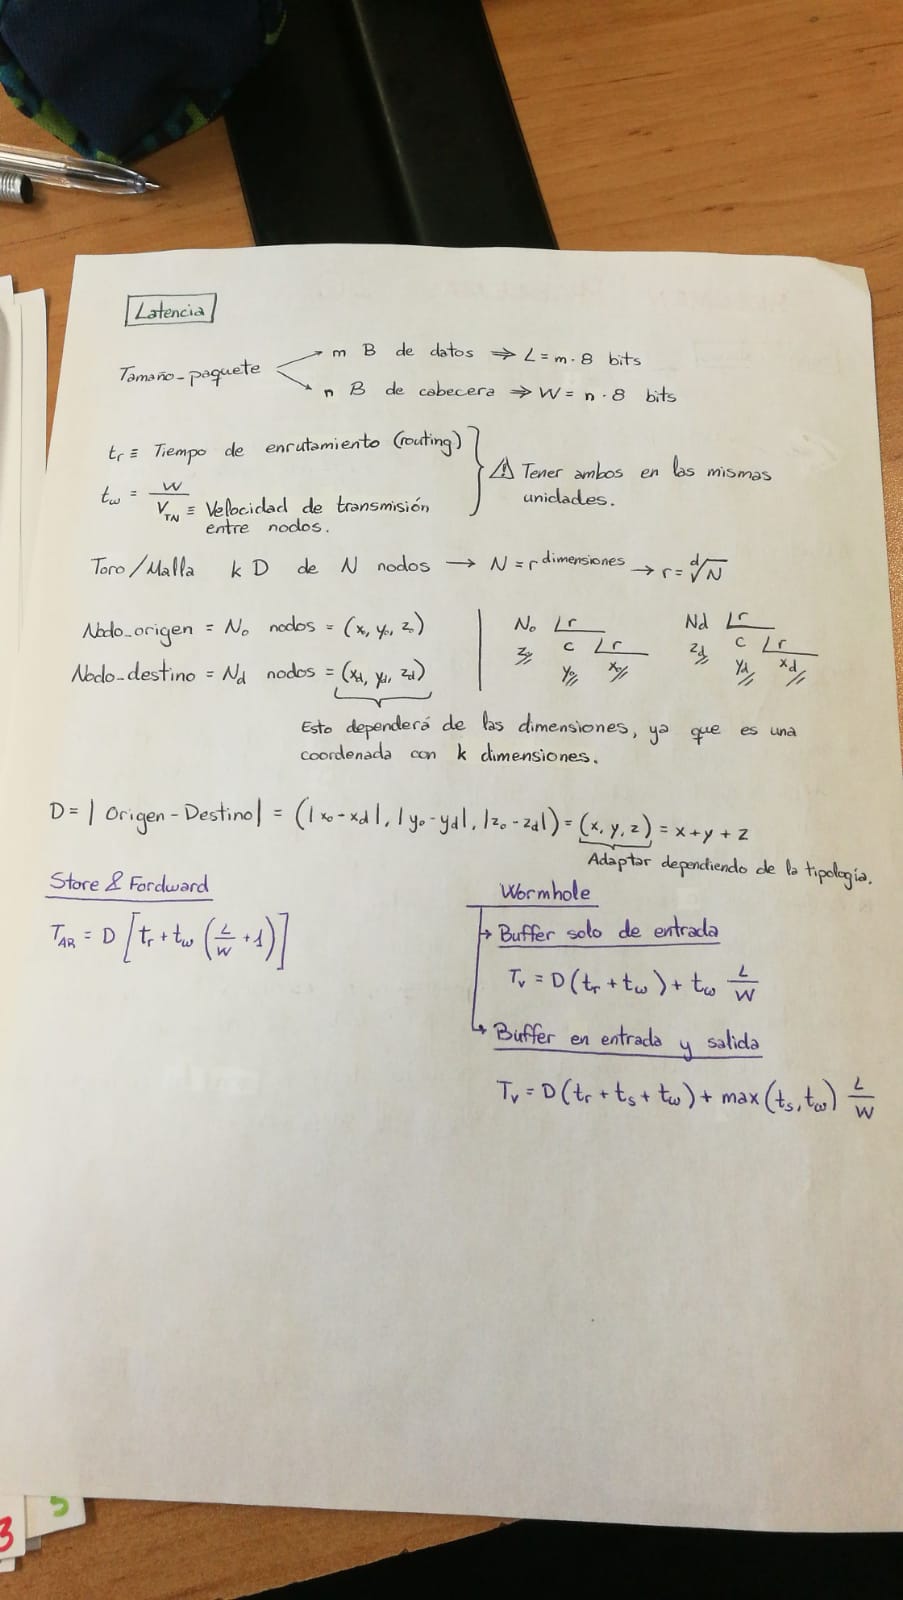 Latencia
Tamaño-paquete
m B de datos ⇒ L = m · 8 bits
n B de cabecera ⇒ W = n · 8 bits
tr ≡ Tiempo de enrutamiento (routing)
tw = W / VTN ≡ Velocidad de transmisión
entre nodos.
⚠ Tener ambos en las mismas
unidades.
Toro/Malla k D de N nodos → N = r^dimensiones → r = ᵈ√N
Nodo_origen = No nodos = (x, yo, zo)
Nodo_destino = Nd nodos = (xd, yd, zd)
No | r
zo c | r
yo xo
Nd | r
zd c | r
yd xd
Esto dependerá de las dimensiones, ya que es una
coordenada con k dimensiones.
D = | Origen - Destino | = (|xo - xd|, |yo - yd|, |zo - zd|) = (x, y, z) = x + y + z
Adaptar dependiendo de la tipología.
Store & Fordward
TAR = D [tr + tw (L/W + 1)]
Wormhole
↳ Buffer solo de entrada
Tv = D (tr + tw) + tw L/W
↳ Buffer en entrada y salida
Tv = D (tr + ts + tw) + max (ts, tw) L/W
3
5